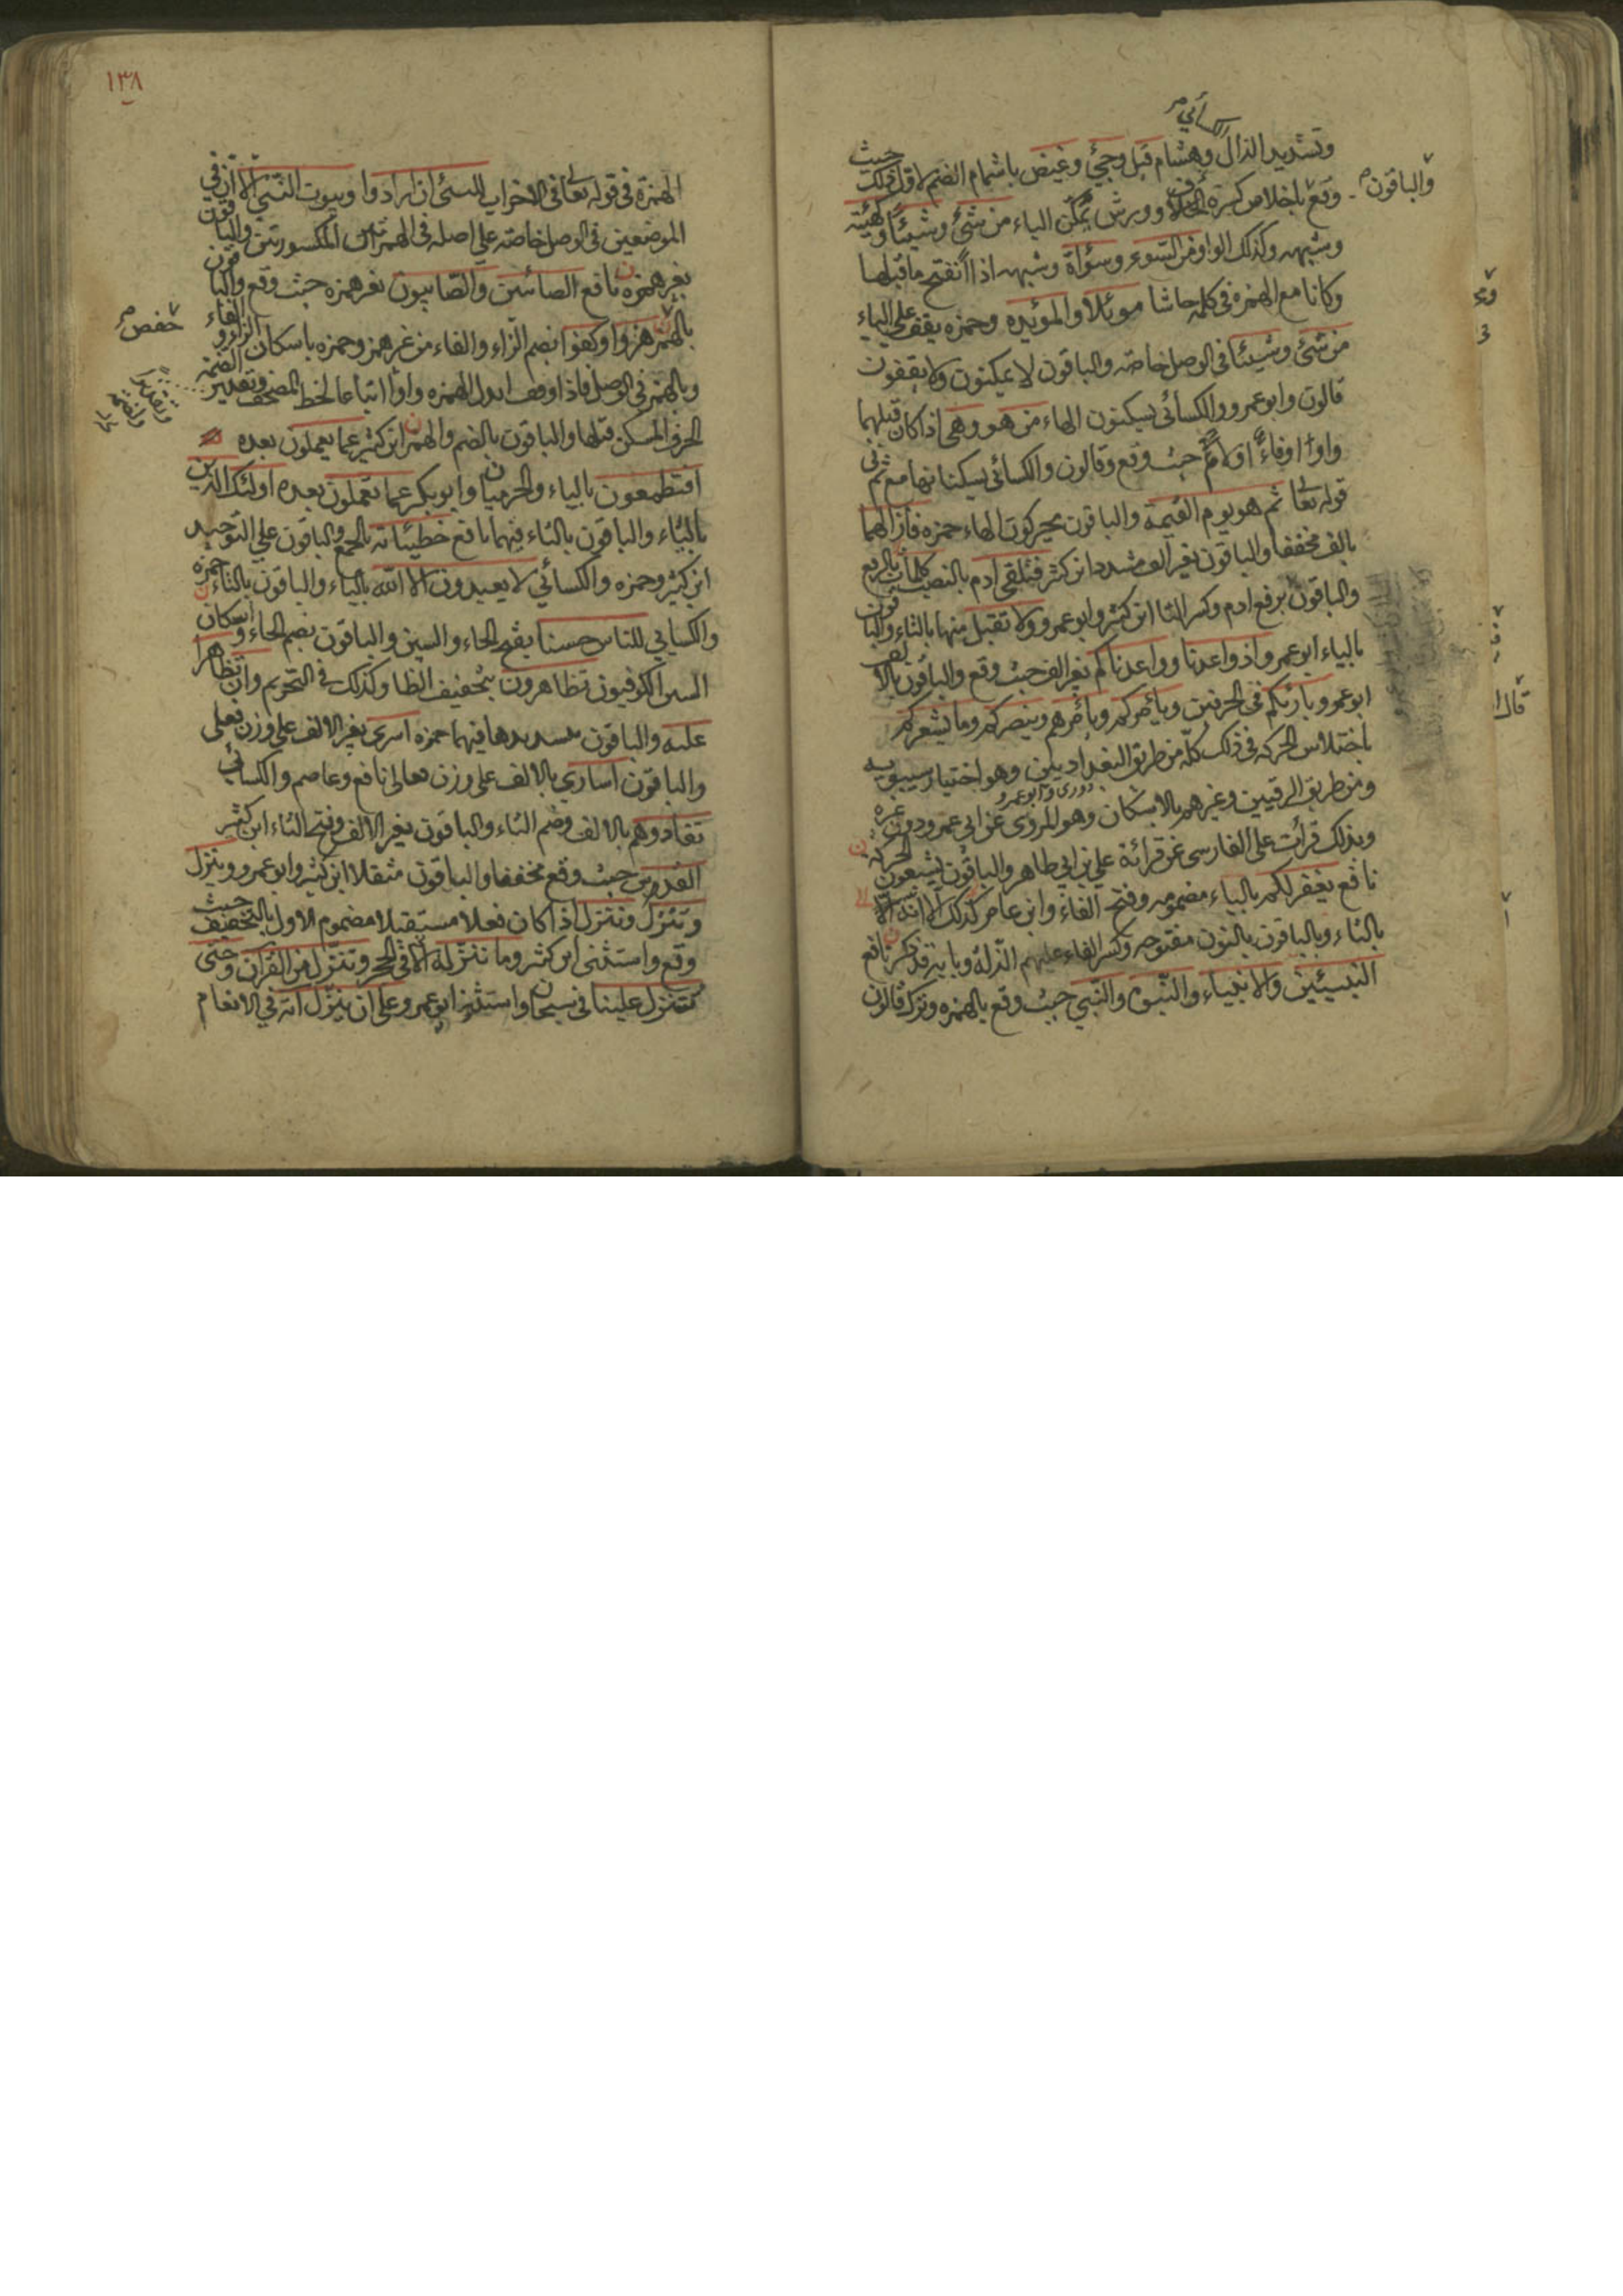 الكسائي
وتشديد الذال وهشام قيل وجئ وغيض باشمام الضم لاول ذلك حيث
والباقون
وقع باخلاص كسرة الحرف وورش يمكّن الياء من شئ وشيئًا وكهيئة
وشبهه وكذلك الواو من السّوء وسؤاة وشبهه اذا انفتح ما قبلها
وكانا مع الهمزه في كلمه حاشا موئلا والموئده وحمزه يقف على الياء
من شئ وشيئا في الوصل خاصّه والباقون لا يمكنون ولا يقفون
قالون وابو عمرو والكسائي يسكنون الهاء من هو وهي اذا كان قبلهما
واوًا او فاءً او لامًا حيث وقع وقالون والكسائي يسكنانها مع ثم في
قوله تعا ثم هو يوم القيمه والباقون يحركون الهاء حمزه فأزالهما
بالف مخففا والباقون بغير الف مشددا ابن كثير فتلقى ادم بالنصب كلمات بالرفع
والباقون برفع ادم وكسر التا ابن كثير وابو عمرو ولا تقبل منها بالتاء والباقون
بالياء ابو عمرو واذ واعدنا وواعدناكم بغير الف حيث وقع والباقون بالالف
ابو عمرو بارئكم في الحرفين ويأمركم ويأمرهم وينصركم وما يشعركم
باختلاس الحركه في ذلك كله من طريق البغداديين وهو اختيار سيبويه
دورى وابو عمرو
ومن طريق الرقيين وغيرهم بالاسكان وهو المروى عن ابي عمرو دون غيره
وبذلك قرأت على الفارسى عن قرائة على ابى طاهر والباقون يشبعون الحركة
نافع يغفر لكم بالياء مضمومه وفتح الفاء وابن عامر كذلك الا انه
بالتاء والباقون بالنون مفتوحه وكسر الفاء عليهم الذلة وبابه قد ذكر نافع
النبيئين والانبئاء والنبوة والنبي حيث وقع بالهمزه وترك قالون
قال
١٣٨
الهمزة في قوله تعا في الاحزاب للنبئ ان اراد وبيوت النبي الا ان في
الموضعين في الوصل خاصّه على اصله في الهمزتين المكسورتين والباقون
بغير همزه نافع الصائبين والصّابيون بغير همزه حيث وقع والباقون
بالهمز هزوا وكفوا بضم الزاء والفاء من غير همز وحمزه باسكان الزاء والفاء
حفص
وبالهمز في الوصل فاذا وقف ابدل الهمزه واوًا اتباعا لخط المصحف وتقدير الضمة
الحرف المسكن قبلها والباقون بالضم والهمز ابن كثير عما يعملون بعده
افتطمعون بالياء والحرميان وابو بكر عما تعملون بعده اولئك الذين
بالياء والباقون بالتاء فيهما نافع خطيئاته بالجمع والباقون على التوحيد
ابن كثير وحمزه والكسائي لا يعبدون الا الله بالياء والباقون بالتاء حمزه
والكسائي للناس حسنا بفتح الحاء والسين والباقون بضم الحاء واسكان
السين الكوفيون تظاهرون بتخفيف الظا وكذلك في التحريم وان تظاهرا
عليه والباقون بتشديدها فيهما حمزه اسرى بغير الالف على وزن فعلى
والباقون اسارى بالالف على وزن فعالى نافع وعاصم والكسائي
تفادوهم بالالف وضم التاء والباقون بغير الالف وفتح التاء ابن كثير
القدس حيث وقع مخففا والباقون مثقلا ابن كثير وابو عمرو وينزل
وتنزل وننزل اذا كان فعلا مستقبلا مضموم الاول بالتخفيف حيث
وقع واستثنى ابن كثير وما ننزله الا في الحجر وننزل من القرآن وحتى
تنزل علينا في سبحان واستثنى ابو عمرو على ان ينزل اية في الانعام